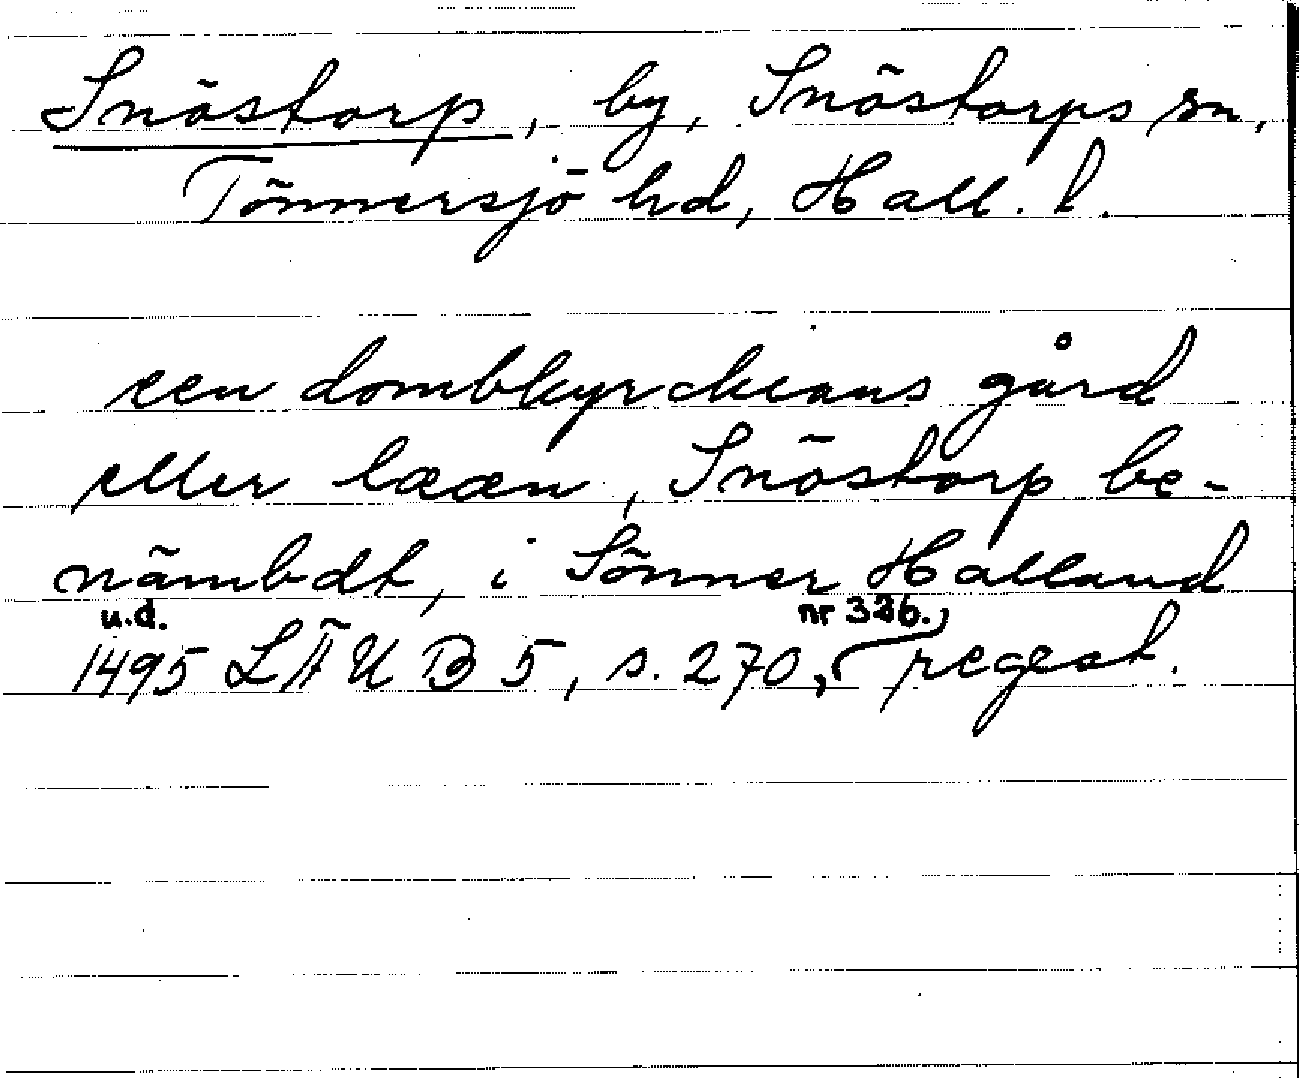 Snöstorp, by, Snöstorps sn,
Tönnersjö hd, Hall. l.
een dombkyrckians gård
eller lææn, Snöstorp be-
nämbdt, i Sönner Halland
u.d. nr 326.
1495 LÄUB 5, s. 270, regest.